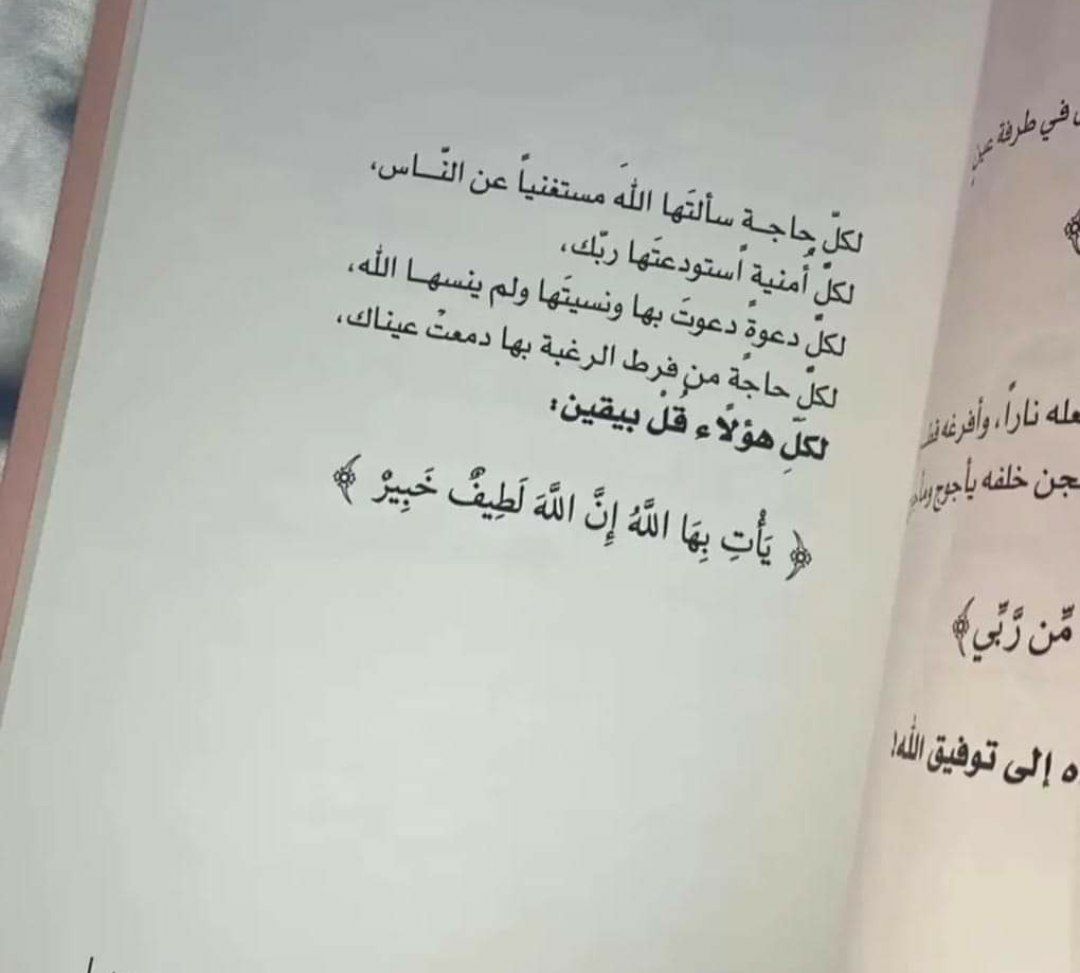 لكلّ حاجـة سألتَها اللهَ مستغنياً عن النّــاس،
لكلّ أُمنية اًستودعتَها ربّك،
لكلّ دعوةً دعوتَ بها ونسيتَها ولم ينسهـا الله،
لكلّ حاجةً من فرط الرغبة بها دمعتْ عيناك،
لكلّ هؤلًاء قُلْ بيقين:
﴿ يَأْتِ بِهَا اللَّهُ إِنَّ اللَّهَ لَطِيفٌ خَبِيرْ ﴾
في طرفة عين
عله ناراً، وأفرغه
جن خلفه يأجوج
مِّن رَّبِّي﴾
ه إلى توفيق الله!